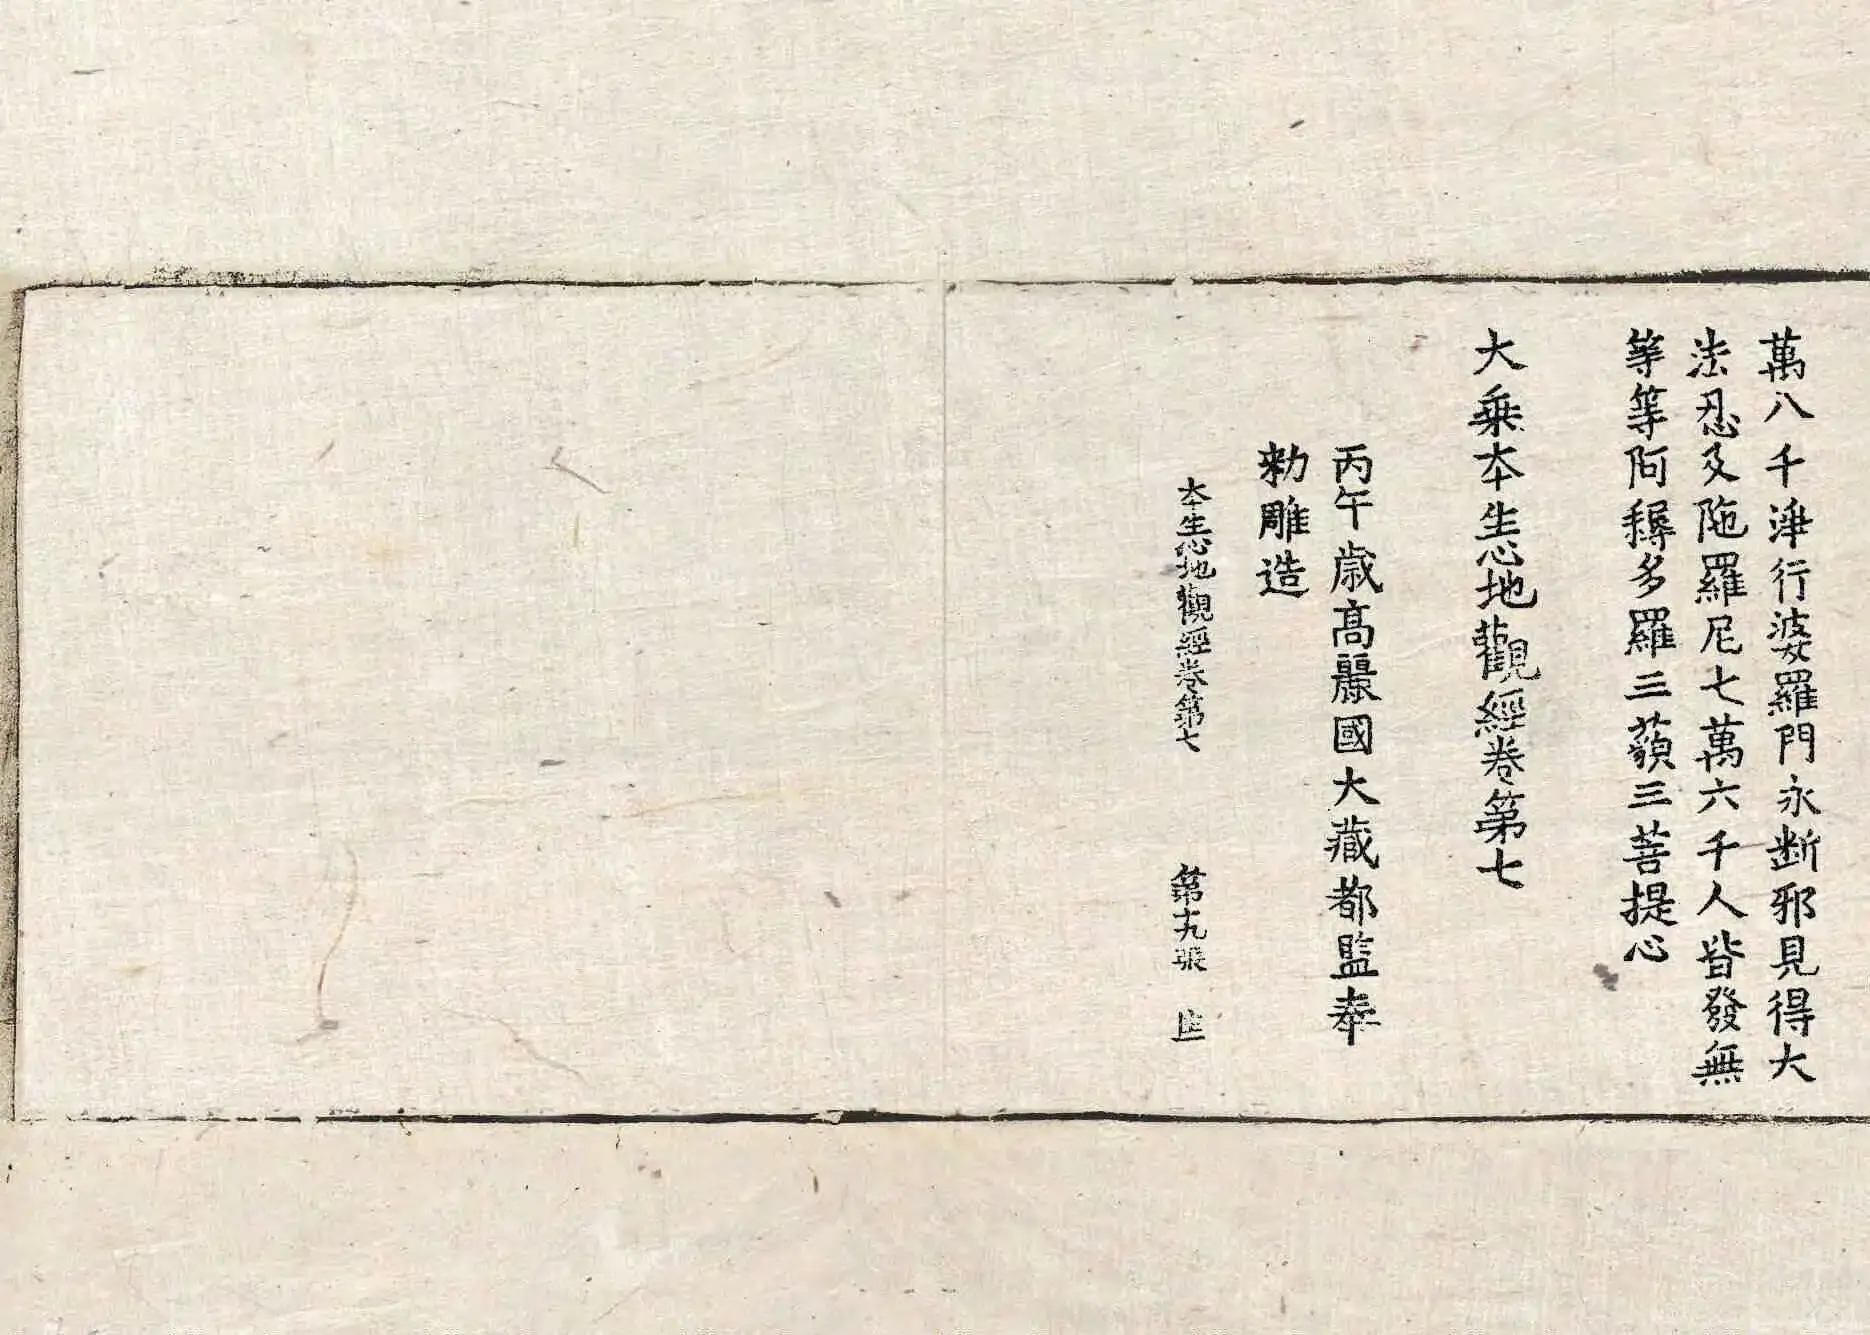 萬八千淨行婆羅門永斷邪見得大
法忍及陁羅尼七萬六千人皆發無
等等阿耨多羅三藐三菩提心
大乗夲生心地觀經卷第七
丙午歲高麗國大藏都監奉
勅雕造
夲生心地觀經卷第七 第十九張 匡